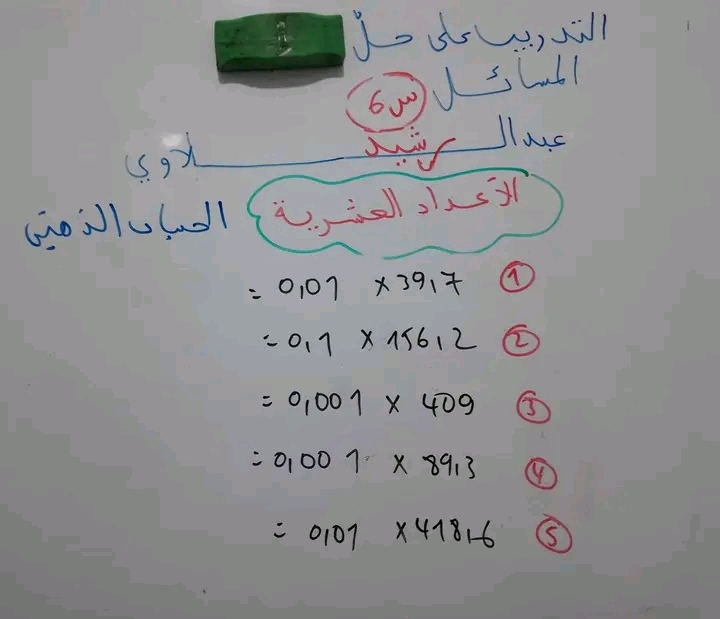 التدريب على حلّ
المسائل س6
عبدالرشيد لاوي
الأعداد العشرية الحساب الذهني
① 39,7 × 0,01 =
② 156,2 × 0,1 =
③ 409 × 0,001 =
④ 89,3 × 0,001 =
⑤ 418,6 × 0,01 =